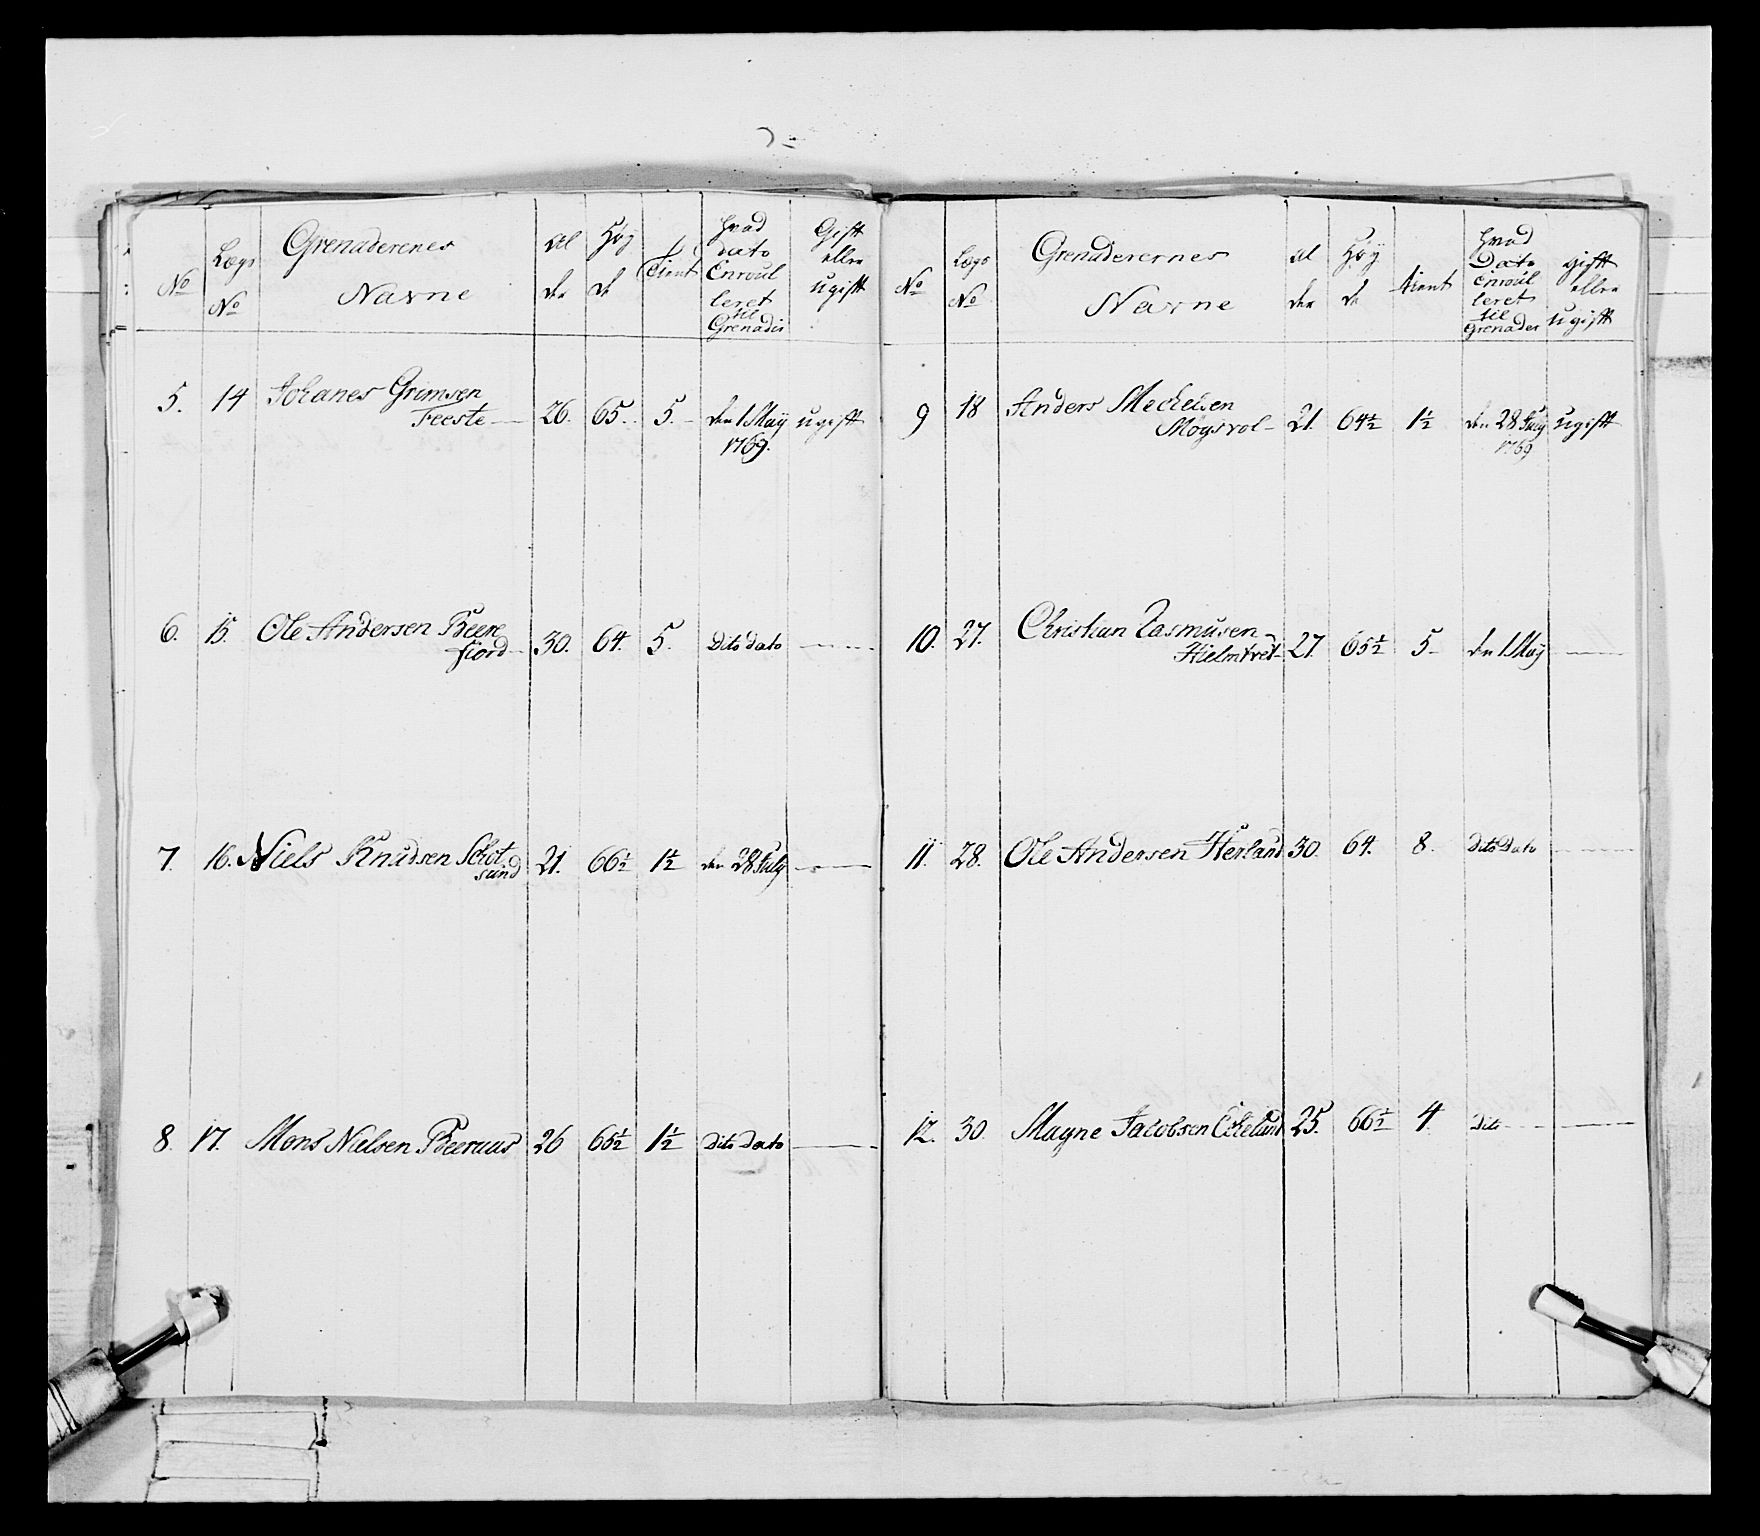 No
Lægs No
Grenaderenes Navne
Al der
Høy de
Tient
Hvad Dato Enroulleret til Grenadir
Gift eller ugift
5. 14 Johanes Grimsen
Feeste 26. 65. 5. den 1 May ugift
1769.
6. 15. Ole Andersen Beere
fiord 30. 64. 5. Dito dato
7. 16. Niels Knudsen Schot
sund 21. 66½ 1½ den 28 July
8. 17. Mons Nielsen 26 65½ 1½ Dito Dato
No
Lægs No
Grenaderernes Navne
Al der
Høy de
tient
Hvad Dato Enroulleret til Grenader
gift eller ugift
9 18 Anders Mechelsen
21. 64½ 1½ den 28 July ugift
1769
10. 27. Christian Rasmusen
27. 65½ 5 den 1 May
11. 28. Ole Andersen Herland 30. 64. 8. Dito Dato
12. 30. Magne Jacobsen 25. 66½ 4. Dito